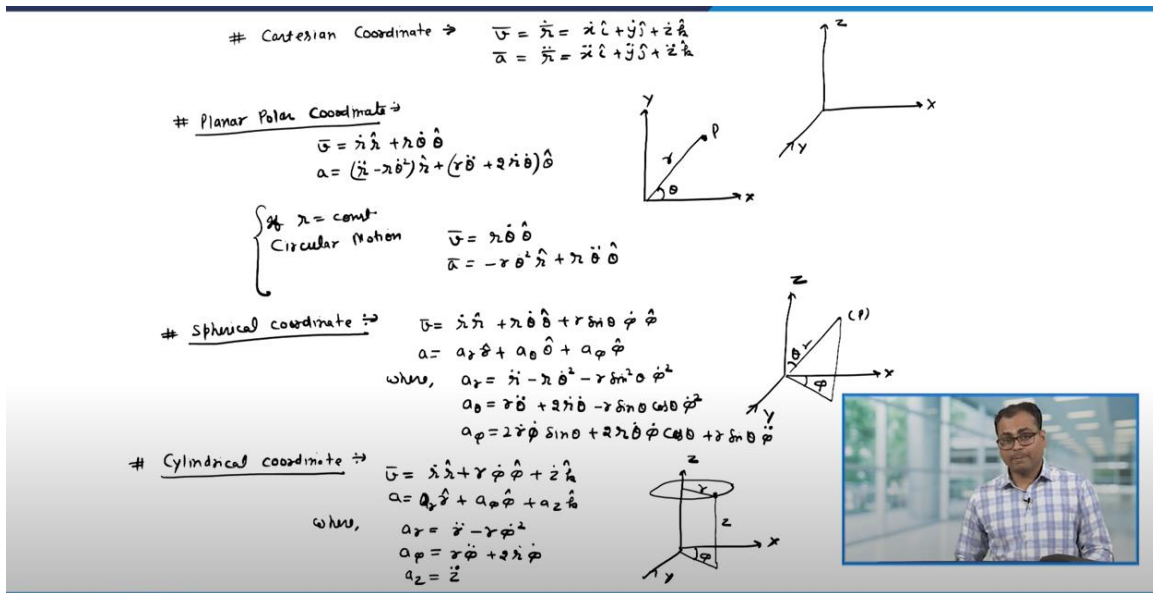 # Cartesian Coordinate → v̅ = ṙ̅ = ẋ î + ẏ ĵ + ż k̂
a̅ = r̅̈ = ẍ î + ÿ ĵ + z̈ k̂
Z
X
Y
# Planar Polar Coordinate →
v̅ = ṙ r̂ + r θ̇ θ̂
a = (r̈ - r θ̇²) r̂ + (r θ̈ + 2 ṙ θ̇) θ̂
Y
P
r
θ
X
If r = const
Circular Motion
v̅ = r θ̇ θ̂
a̅ = - r θ̇² r̂ + r θ̈ θ̂
# Spherical coordinate :→ v̅ = ṙ r̂ + r θ̇ θ̂ + r sin θ φ̇ φ̂
a = aᵣ r̂ + a_θ θ̂ + a_φ φ̂
where, aᵣ = r̈ - r θ̇² - r sin² θ φ̇²
a_θ = r θ̈ + 2 ṙ θ̇ - r sin θ cos θ φ̇²
a_φ = 2 ṙ φ̇ sin θ + 2 r θ̇ φ̇ cos θ + r sin θ φ̈
Z
(P)
θ r
φ
X
Y
# Cylindrical coordinate :→ v̅ = ṙ r̂ + r φ̇ φ̂ + ż k̂
a = aᵣ r̂ + a_φ φ̂ + a_z k̂
where, aᵣ = r̈ - r φ̇²
a_φ = r φ̈ + 2 ṙ φ̇
a_z = z̈
Z
r
z
φ
X
Y